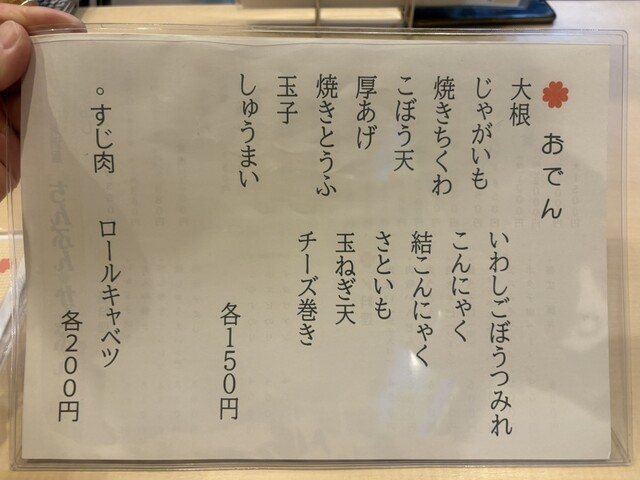 おでん
大根
じゃがいも
焼きちくわ
こぼう天
厚あげ
焼きとうふ
玉子
しゅうまい
いわしごぼうつみれ
こんにゃく
結こんにゃく
さといも
玉ねぎ天
チーズ巻き
各150円
。すじ肉
ロールキャベツ
各200円